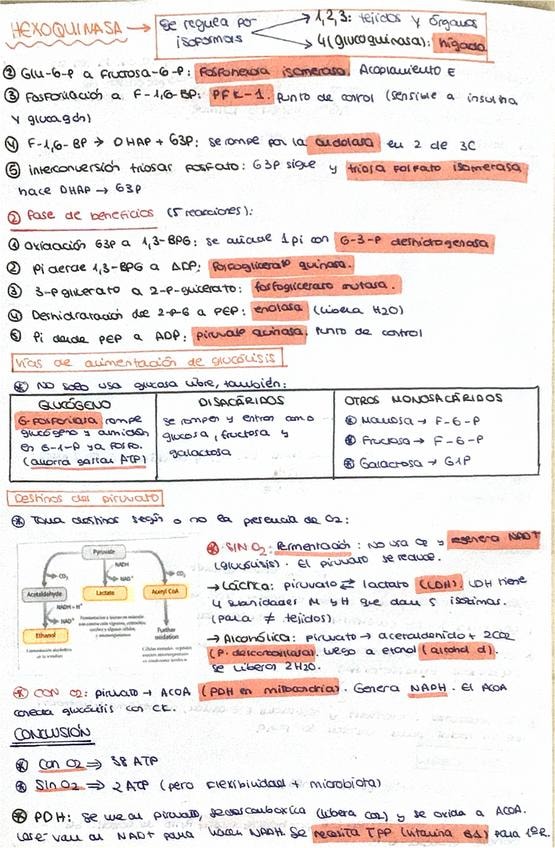 HEXOQUINASA → Se regula por isoformas
1, 2, 3: tejidos y órganos
4 (glucoquinasa): hígado
② Glu-6-P a Fructosa-6-P: fosfohexosa isomerasa, Acoplamiento E
③ Fosforilación a F-1,6-BP: PFK-1. Punto de control (sensible a insulina
y glucagón)
④ F-1,6-BP → DHAP + G3P: se rompe por la aldolasa en 2 de 3C
⑤ Interconversión triosas fosfato: G3P sigue y triosa fosfato isomerasa
hace DHAP → G3P
② Fase de beneficios (5 reacciones):
① Oxidación G3P a 1,3-BPG: se añade 1 pi con G-3-P deshidrogenasa
② Pi de 1,3-BPG a ADP: fosfoglicerato quinasa.
③ 3-P-glicerato a 2-P-glicerato: fosfoglicerato mutasa.
④ Deshidratación de 2-P-G a PEP: enolasa (libera H2O)
⑤ Pi desde PEP a ADP: piruvato quinasa. Punto de control
Vías de alimentación de glucólisis
No solo usa glucosa libre, también:
GLUCÓGENO
G-fosforilasa rompe
glucógeno y almidón
en G-1-P ya fosfo.
(ahorra gastar ATP)
DISACÁRIDOS
Se rompen y entran como
glucosa, fructosa y
galactosa
OTROS MONOSACÁRIDOS
Manosa → F-6-P
Fructosa → F-6-P
Galactosa → G1P
Destinos del piruvato
Toma destinos según o no la presencia de O2:
Pyruvate
CO2
NADH
NAD+
CO2
Acetaldehyde
Lactate
Acetyl CoA
NADH + H+
NAD+
Ethanol
Further
oxidation
SIN O2: Fermentación: No usa O2 y regenera NAD+
(glucólisis). El piruvato se reduce.
→ Láctica: piruvato ⇄ lactato (LDH). LDH tiene
4 subunidades M y H que dan 5 isozimas.
(para ≠ tejidos)
→ Alcohólica: piruvato → acetaldehído + 2CO2
(P. descarboxilasa). Luego a etanol (alcohol d).
Se libera 2H2O.
CON O2: piruvato → ACOA (PDH en mitocondria). Genera NADH. El ACOA
conecta glucólisis con CK.
CONCLUSIÓN
Con O2 ⇒ 38 ATP
Sin O2 ⇒ 2 ATP (pero flexibilidad + microbiota)
PDH: Se une al piruvato, se descarboxila (libera CO2) y se oxida a ACOA.
van al NAD+ para NADH. Se necesita TPP (vitamina B1) para